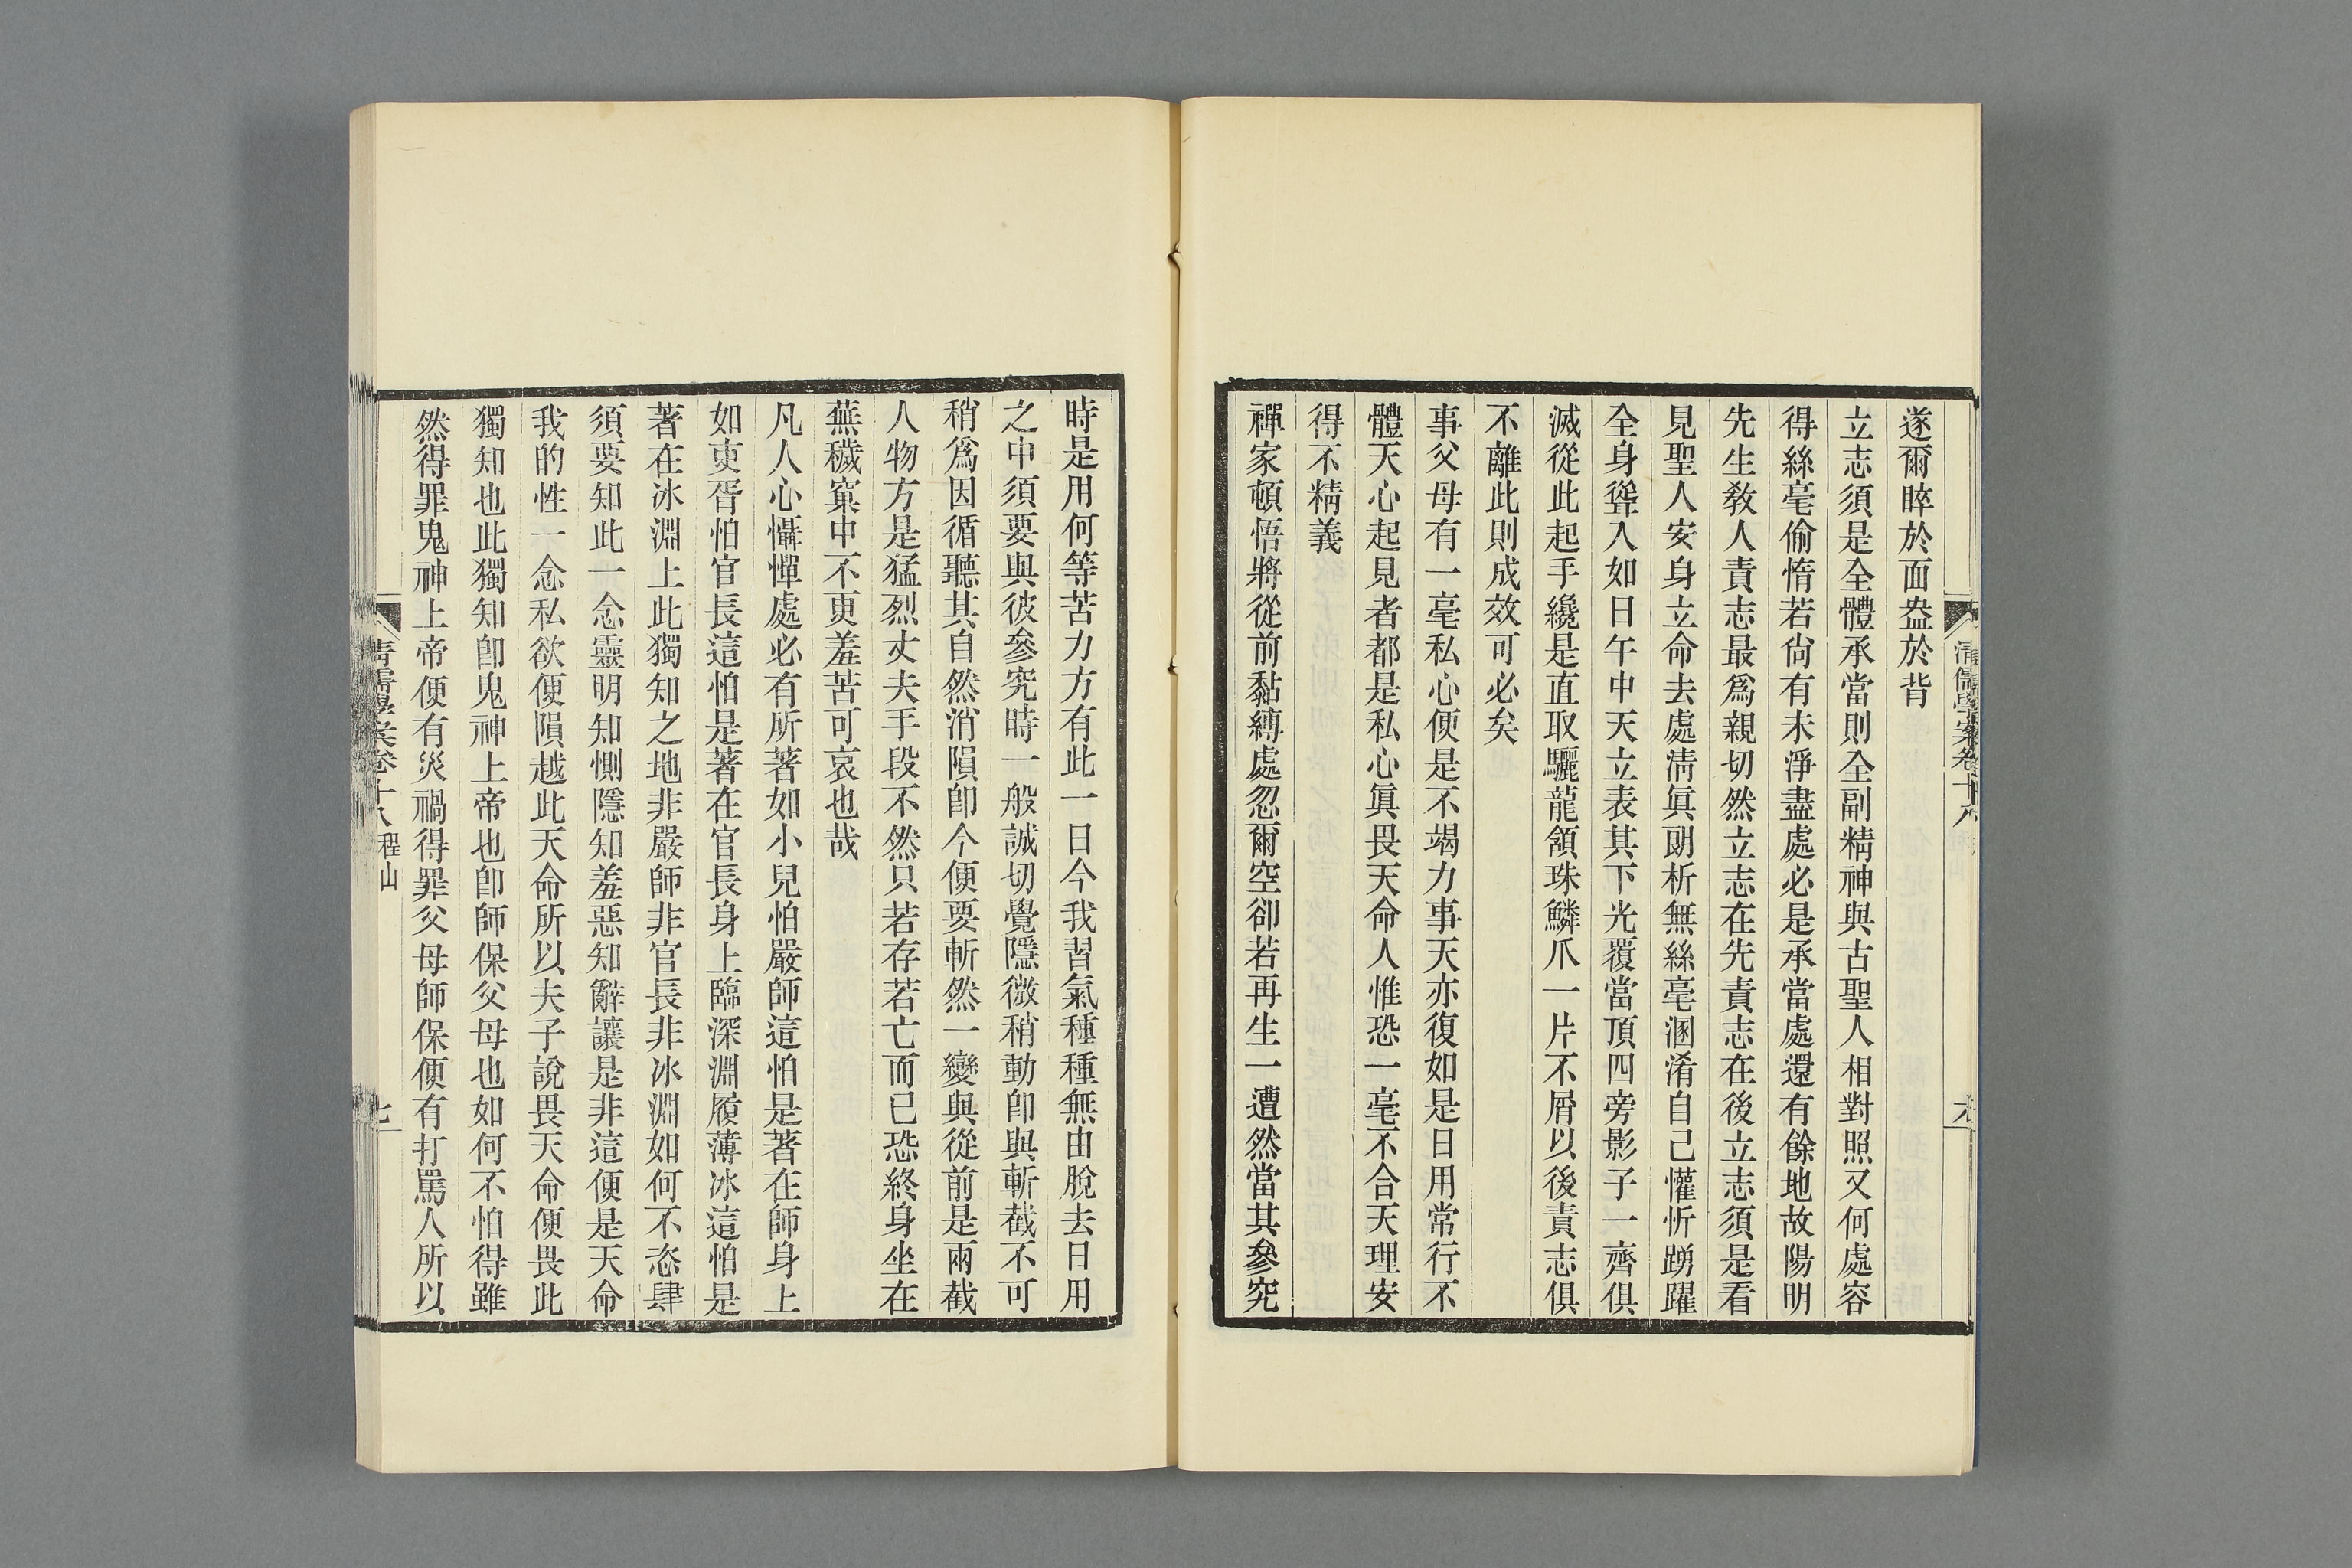 清儒學案卷十八
遂爾睟於面盎於背
立志須是全體承當則全副精神與古聖人相對照又何處容
得絲毫偷惰若尙有未淨盡處必是承當處還有餘地故陽明
先生敎人責志最爲親切然立志在先責志在後立志須是看
見聖人安身立命去處淸眞朗析無絲毫溷淆自己懽忻踴躍
全身聳入如日午中天立表其下光覆當頂四旁影子一齊俱
滅從此起手纔是直取驪龍頷珠鱗爪一片不屑以後責志俱
不離此則成效可必矣
事父母有一毫私心便是不竭力事天亦復如是日用常行不
體天心起見者都是私心眞畏天命人惟恐一毫不合天理安
得不精義
禪家頓悟將從前黏縛處忽爾空卻若再生一遭然當其參究
時是用何等苦力方有此一日今我習氣種種無由脫去日用
之中須要與彼參究時一般誠切覺隱微稍動卽與斬截不可
稍爲因循聽其自然消隕卽今便要斬然一變與從前是兩截
人物方是猛烈丈夫手段不然只若存若亡而已恐終身坐在
蕪穢窠中不更羞苦可哀也哉
凡人心懾憚處必有所著如小兒怕嚴師這怕是著在師身上
如吏胥怕官長這怕是著在官長身上臨深淵履薄冰這怕是
著在冰淵上此獨知之地非嚴師非官長非冰淵如何不恣肆
須要知此一念靈明知惻隱知羞惡知辭讓是非這便是天命
我的性一念私欲便隕越此天命所以夫子說畏天命便畏此
獨知也此獨知卽鬼神上帝也卽師保父母也如何不怕得雖
然得罪鬼神上帝便有災禍得罪父母師保便有打罵人所以
清儒學案卷十八 程山
七